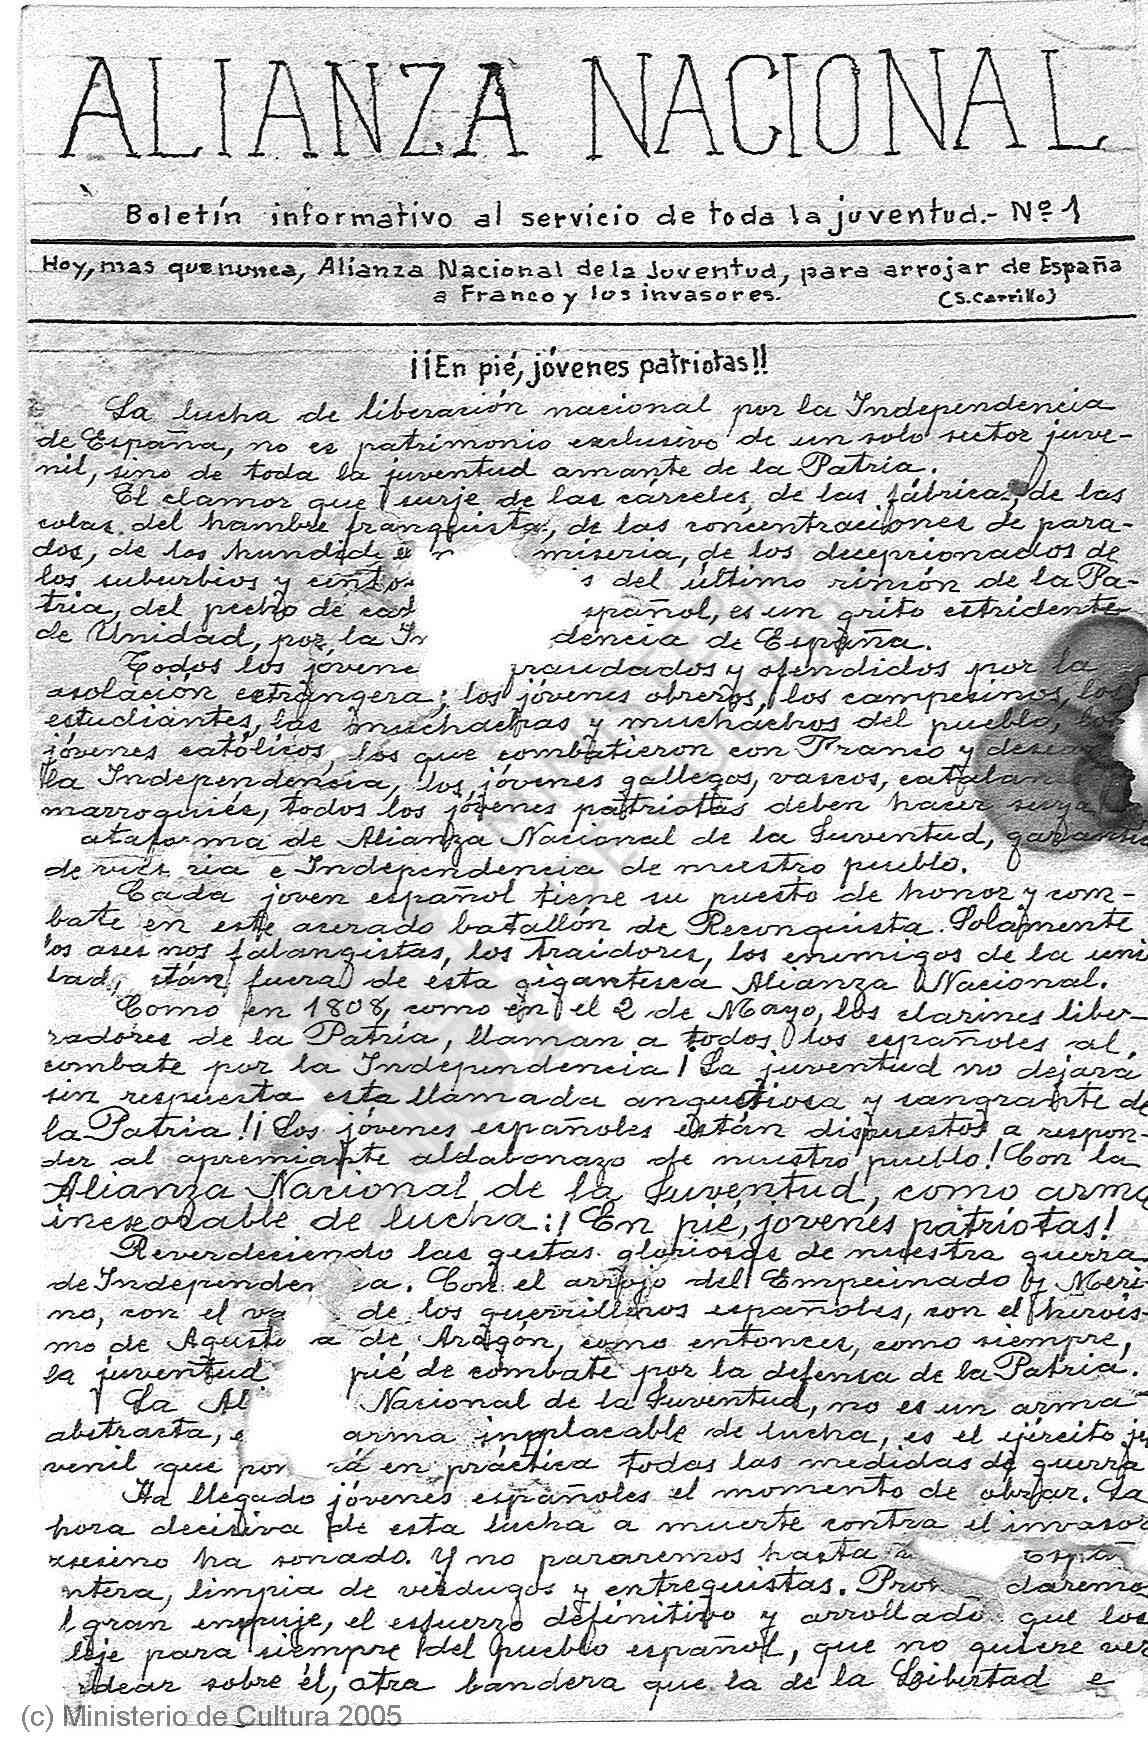 ALIANZA NACIONAL
Boletín informativo al servicio de toda la juventud.- Nº 1
Hoy, mas que nunca, Alianza Nacional de la Juventud, para arrojar de España
a Franco y los invasores.
(S. Carrillo)
¡¡En pié, jóvenes patriotas!!
La lucha de liberación nacional por la Independencia
de España, no es patrimonio exclusivo de un solo sector juve-
nil, sino de toda la juventud amante de la Patria.
El clamor que surje de las cárceles, de las fábricas, de las
colas del hambre franquista, de las concentraciones de para-
dos, de los miseria, de los decepcionados de
los suburbios y del último rincón de la Pa-
tria, del pecho de spañol, es un grito estridente
de Unidad, por la In dencia de España.
Todos los jovene raudados y ofendidos por la
asolación extrangera; los jóvenes obreros, los campesinos, los
estudiantes, las muchachas y muchachos del pueblo, los
jóvenes católicos, los que combatieron con Franco y desea
la Independencia, los jóvenes gallegos, vascos, catalan
marroquíes, todos los jóvenes patriotas deben hacer suya
ataforma de Alianza Nacional de la Juventud, garantía
de vict ria e Independencia de nuestro pueblo.
Cada joven español tiene su puesto de honor y com-
bate en este acerado batallón de Reconquista. Solamente
los ases nos falangistas, los traidores, los enemigos de la uni
dad, stán fuera de esta gigantesca Alianza Nacional.
Como en 1808, como en el 2 de Mayo, los clarines liber-
radores de la Patria, llaman a todos los españoles al
combate por la Independencia ¡La juventud no dejará
sin respuesta esta llamada angustiosa y sangrante de
la Patria! ¡Los jóvenes españoles están dispuestos a respon-
der al apremiante aldabonazo de nuestro pueblo! Con la
Alianza Nacional de la Juventud, como arma
inexorable de lucha: ¡En pié, jovenes patriotas!
Reverdeciendo las gestas gloriosas de nuestra guerra
de Independen ia. Con el arrojo del Empecinado y Meri
no, con el va de los guerrilleros españoles, con el herois-
mo de Agusti a de Aragón, como entonces, como siempre,
la juventud pié de combate por la defensa de la Patria.
La Al Nacional de la Juventud, no es un arma
abstracta, e arma implacable de lucha, es el ejército ju
venil que pon rá en práctica todas las medidas de guerra
Ha llegado jóvenes españoles el momento de obrar. La
hora decisiva de esta lucha a muerte contra el invasor
asesino ha sonado. Y no pararemos hasta Españ
ntera, limpia de verdugos y entreguistas. daremos
l gran empuje, el esfuerzo definitivo y arrollado que los
leje para siempre del pueblo español, que no quiere ver
ndear sobre él, otra bandera que la de la Libertad e
(c) Ministerio de Cultura 2005